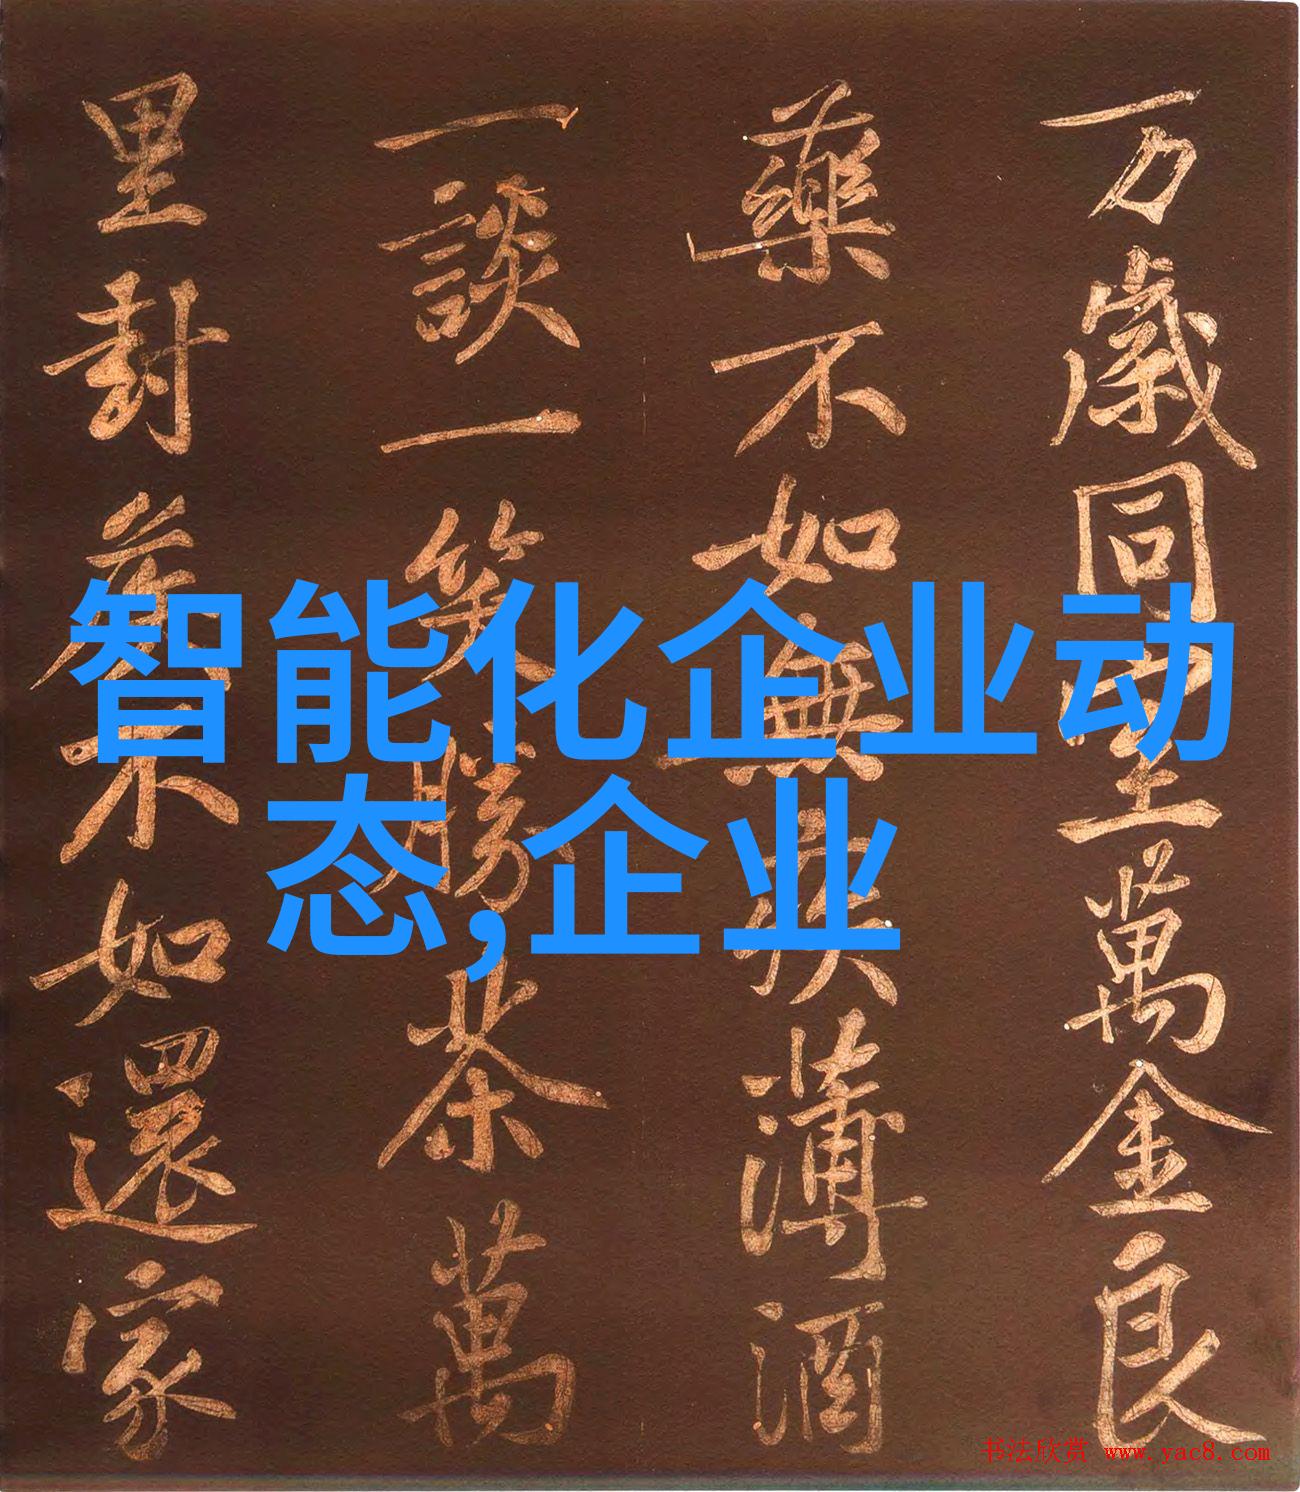 万歲同萬金良
藥不如無疾薄酒
一談一笑勝茶萬
里封侯不如還家
智能化企业动
态,企业
书法欣赏 www.yac8.com